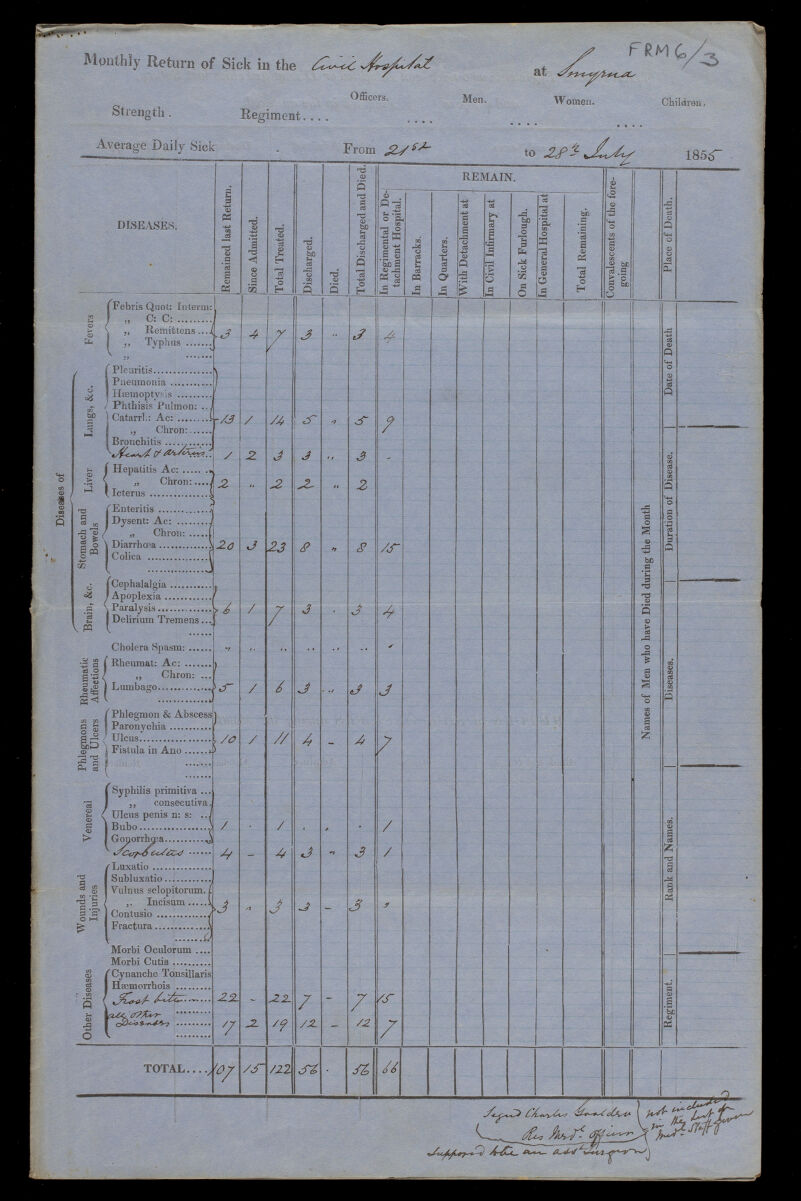 FRM6/3
Monthly Return of Sick in the Civil Hospital at Smyrna
Officers. Men. Women. Children.
Strength. Regiment.... .... .... ....
Average Daily Sick . From 21st to 28th July 1855
DISEASES. Remained last Return. Since Admitted. Total Treated. Discharged. Died. Total Discharged and Died. REMAIN. In Regimental or Detachment Hospital. In Barracks. In Quarters. With Detachment at In Civil Infirmary at On Sick Furlough. In General Hospital at Total Remaining. Convalescents of the foregoing
Names of Men who have Died during the Month
Place of Death. Date of Death Duration of Disease. Diseases. Rank and Names. Regiment.
Diseases of
Fevers
Febris Quot: Interm:
,, C: C: .........
,, Remittens ... 3 4 7 3 .. 3 4
,, Typhus .......
,, .......
Lungs, &c.
Pleuritis...............
Pneumonia ...........
Hæmoptysis .........
Phthisis Pulmon: ..
Catarrl.: Ac: ......... 13 1 14 5 " 5 9
,, Chron: .....
Bronchitis ............
Heart & Arteries. 1 2 3 3 .. 3 -
Liver
Hepatitis Ac: .......
,, Chron: .... 2 .. 2 2 " 2
Icterus ................
Stomach and Bowels
Enteritis ..............
Dysent: Ac: .........
,, Chron: ......
Diarrhœa ............. 20 3 23 8 " 8 15
Colica .................
Brain, &c.
Cephalalgia ...........
Apoplexia ............
Paralysis.............. 6 1 7 3 . 3 4
Delirium Tremens ...
Cholera Spasm: ...... " .. .. .. .. .. "
Rheumatic Affections
Rheumat: Ac: ........
,, Chron: ...
Lumbago.............. 5 1 6 3 .. 3 3
Phlegmons and Ulcers
Phlegmon & Abscess
Paronychia ...........
Ulcus................... 10 1 11 4 - 4 7
Fistula in Ano .......
Venereal
Syphilis primitiva ...
,, consecutiva.
Ulcus penis n: s: ...
Bubo ................... 1 . 1 . . . 1
Gonorrhœa............
Scorbutus ...... 4 - 4 3 " 3 1
Wounds and Injuries
Luxatio ................
Subluxatio ............
Vulnus sclopitorum.
,, Incisum ...... 3 " 3 3 - 3 "
Contusio ..............
Fractura ..............
Morbi Oculorum ....
Morbi Cutis ..........
Other Diseases
Cynanche Tonsillaris
Hæmorrhois .........
Frost bite ........ 22 - 22 7 - 7 15
all other
Diseases ......... 17 2 19 12 - 12 7
TOTAL.... 107 15 122 56 . 56 66
Signed Charles
Res Medl. officer
supposed to be an asst surgeon
not included
in the list of
medl. Staff given